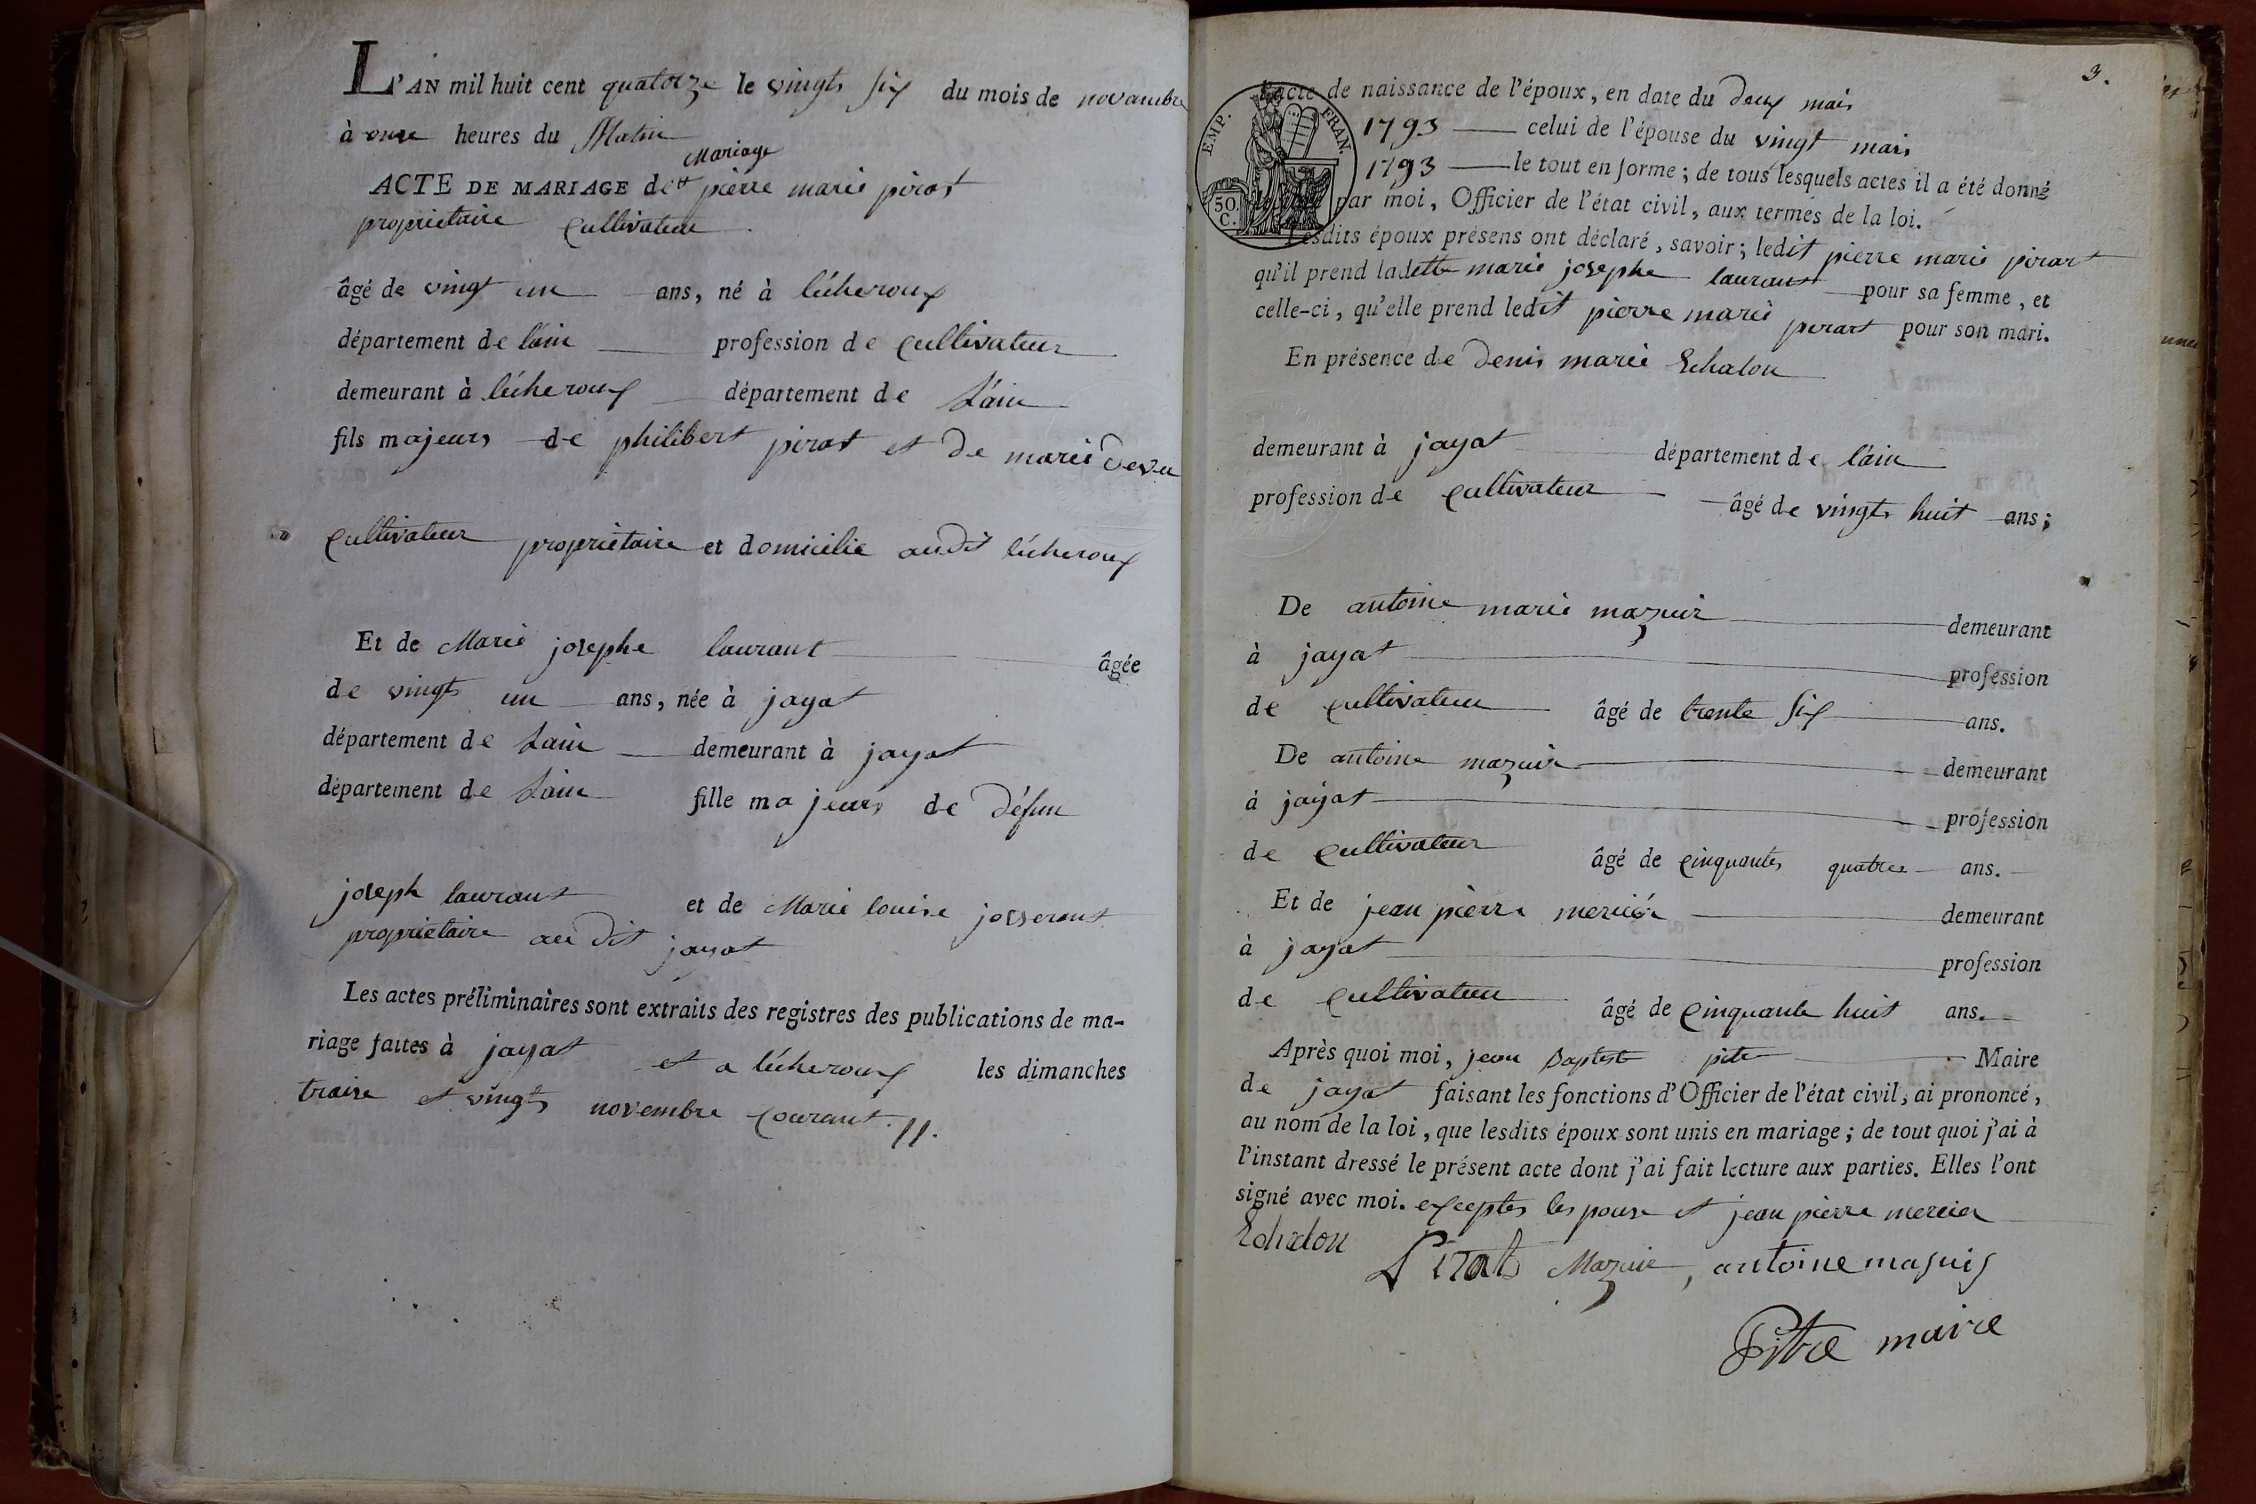 L'AN mil huit cent quatorze le vingts six du mois de novambre
à onze heures du Matin
Mariage
ACTE DE MARIAGE de pierre marie pirat
proprietaire cultivateur
âgé de vingt un ans, né à lécheroux
département de l'ain profession de cultivateur
demeurant à lécheroux département de L'ain
fils majeurs de philibert pirat et de marie devu
cultivateur proprietaire et domicilié audit lécheroux
Et de Marie josephe laurant âgée
de vingts un ans, née à jayat
département de Lain demeurant à jayat
département de Lain fille majeurs de défun
joseph laurant et de Marie louise josserant
proprietaire audit jayat
Les actes préliminaires sont extraits des registres des publications de ma-
riage faites à jayat et a lécheroux les dimanches
traise et vingts novembre courant.//.
3.
EMP. FRAN.
50.
C.
L'acte de naissance de l'époux, en date du deux mais
1793 celui de l'épouse du vingt mais
1793 le tout en forme; de tous lesquels actes il a été donné
par moi, Officier de l'état civil, aux termes de la loi.
Lesdits époux présens ont déclaré, savoir; ledit pierre marie pirart
qu'il prend ladette marie josephe laurant pour sa femme, et
celle-ci, qu'elle prend ledit pierre marie perart pour son mari.
En présence de denis marie Echalon
demeurant à jayat département de l'ain
profession de cultivateur âgé de vingts huit ans;
De antoine marie mazuir demeurant
à jayat profession
de cultivateur âgé de trente six ans.
De antoine mazuir demeurant
à jayat profession
de cultivateur âgé de cinquantes quatres ans.
Et de jean pierre merciér demeurant
à jayat profession
de cultivateur âgé de cinquante huit ans.
Après quoi moi, jean Baptist pitre Maire
de jayat faisant les fonctions d'Officier de l'état civil, ai prononcé,
au nom de la loi, que lesdits époux sont unis en mariage; de tout quoi j'ai à
l'instant dressé le présent acte dont j'ai fait lecture aux parties. Elles l'ont
signé avec moi. exceptes les pouse et jean pierre mercier
Echalon Pirat Mazuir, antoine masuis
Pitre maire